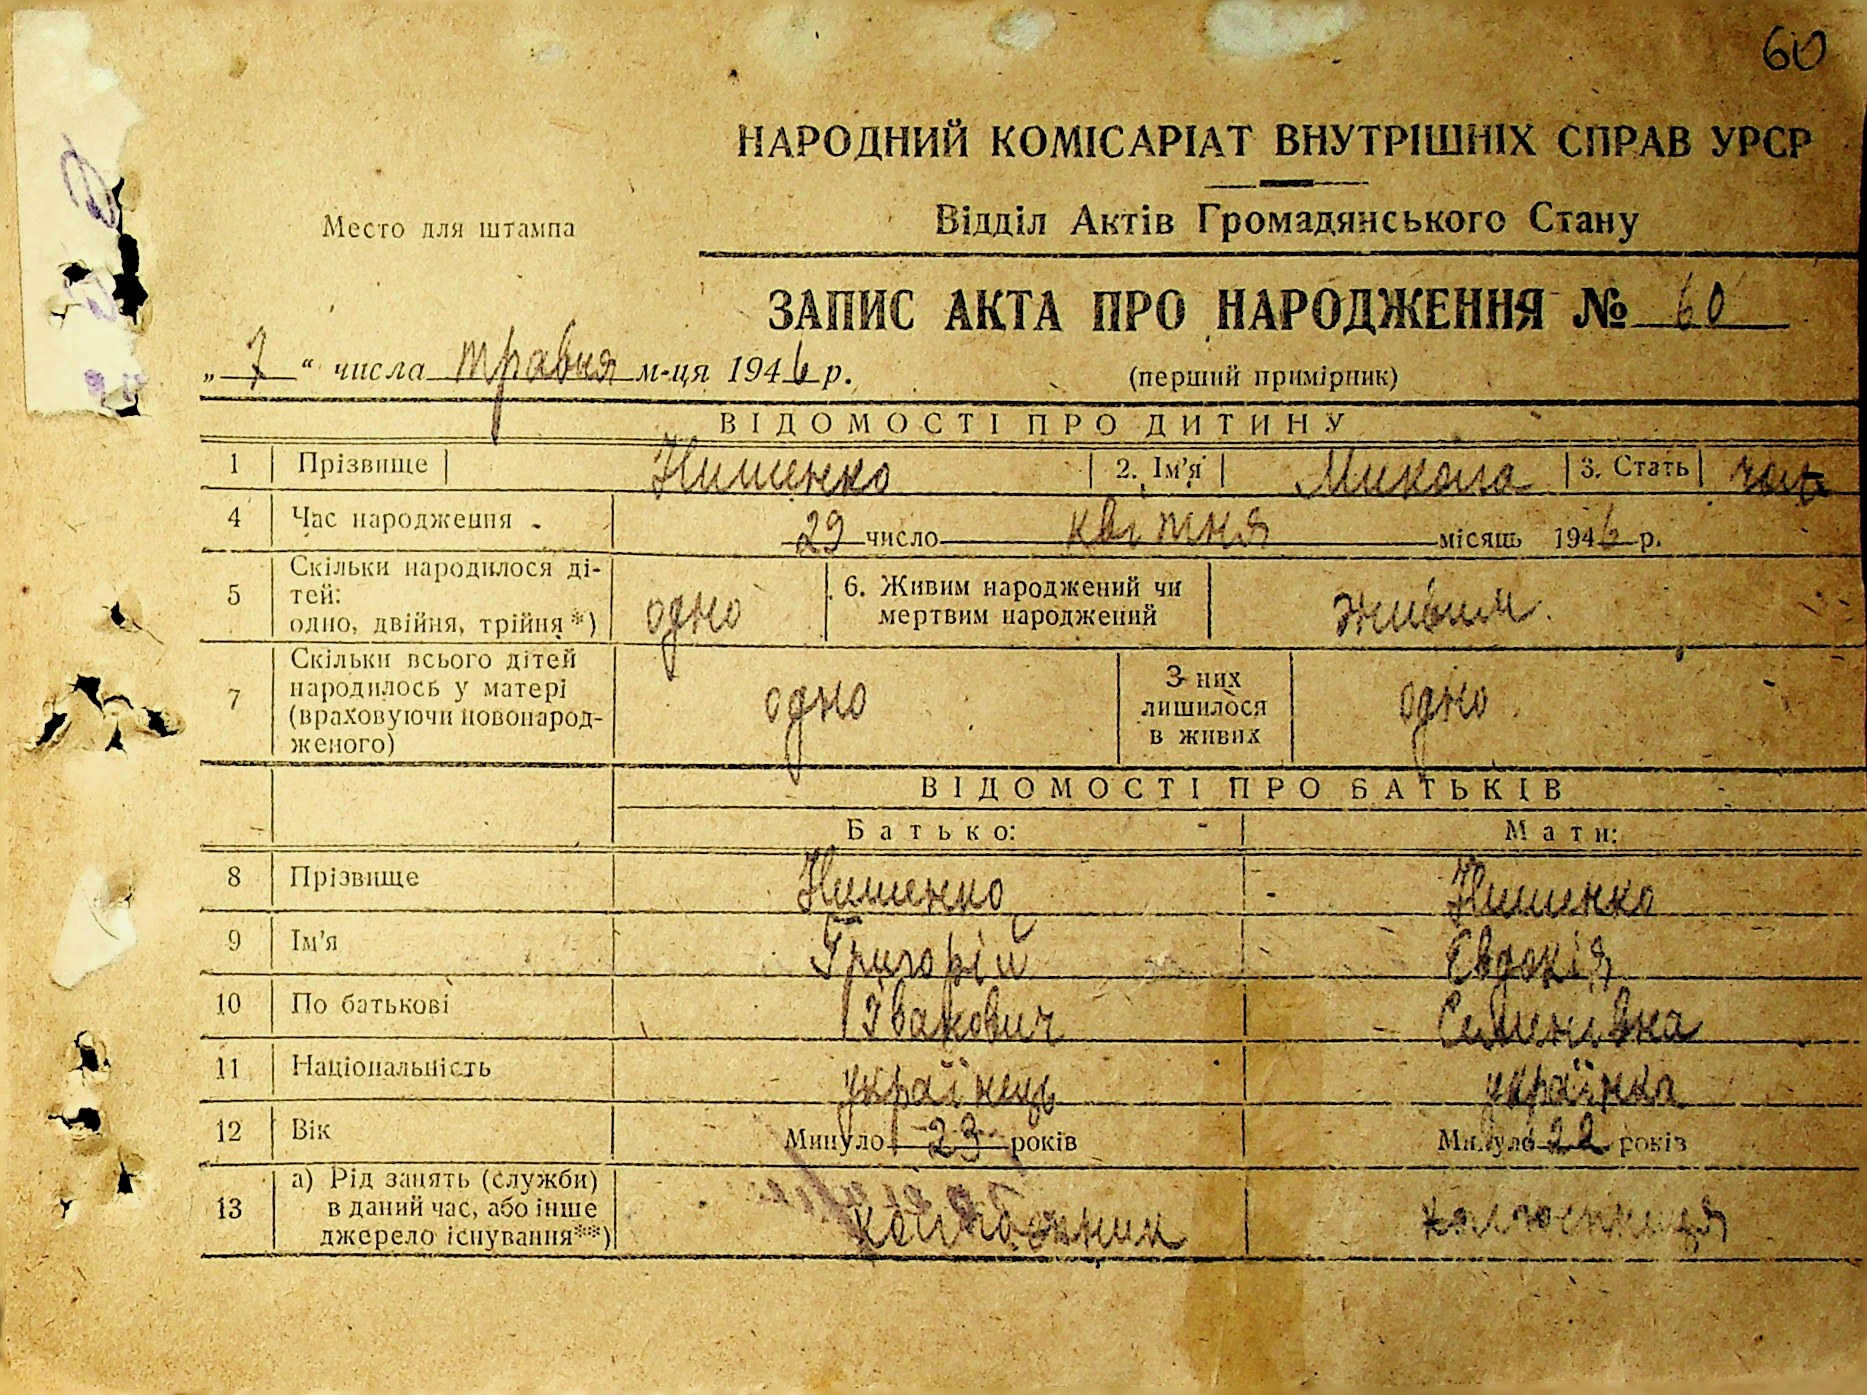 60
НАРОДНИЙ КОМІСАРІАТ ВНУТРІШНІХ СПРАВ УРСР
Место для штампа
Відділ Актів Громадянського Стану
ЗАПИС АКТА ПРО НАРОДЖЕННЯ № 60
„ 7 “ числа травня м-ця 1946 р.
(перший примірник)
ВІДОМОСТІ ПРО ДИТИНУ
1 Прізвище Нищенко 2. Ім'я Микола 3. Стать чол
4 Час народження 29 число квітня місяць 1946 р.
5 Скільки народилося ді-
тей:
одно, двійня, трійня *) одно 6. Живим народжений чи
мертвим народжений живим.
7 Скільки всього дітей
народилось у матері
(враховуючи новонарод-
женого) одно З них
лишилося
в живих одно
ВІДОМОСТІ ПРО БАТЬКІВ
Батько: Мати:
8 Прізвище Нищенко Нищенко
9 Ім'я Григорій Євдокія
10 По батькові Іванович Семенівна
11 Національність українець українка
12 Вік Минуло 23 років Минуло 22 років
13 а) Рід занять (служби)
в даний час, або інше
джерело існування**) колгоспник колгоспниця